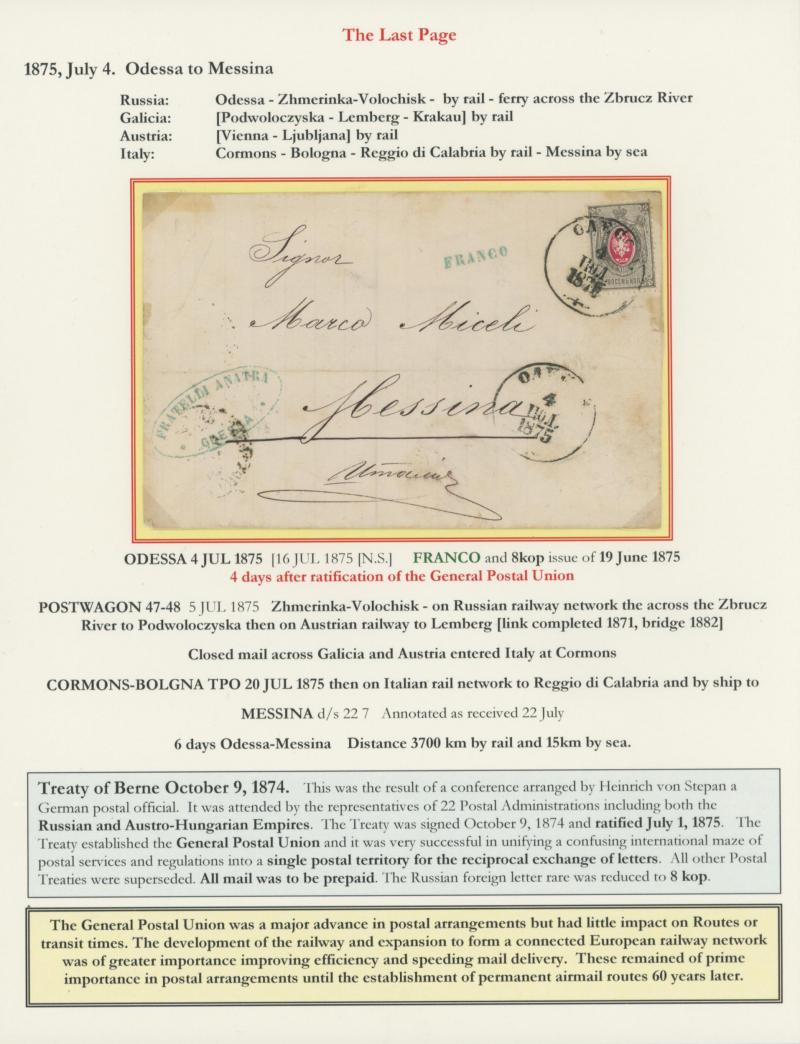 The Last Page
1875, July 4. Odessa to Messina
Russia: Odessa - Zhmerinka-Volochisk - by rail - ferry across the Zbrucz River
Galicia: [Podwoloczyska - Lemberg - Krakau] by rail
Austria: [Vienna - Ljubljana] by rail
Italy: Cormons - Bologna - Reggio di Calabria by rail - Messina by sea
Signor
FRANCO
4
ПОЛ
1875
Marco Miceli
FRATELLI ANATRA
ODESSA
Messina
4
ПОЛ
1875
ODESSA 4 JUL 1875 [16 JUL 1875 [N.S.] FRANCO and 8kop issue of 19 June 1875
4 days after ratification of the General Postal Union
POSTWAGON 47-48 5 JUL 1875 Zhmerinka-Volochisk - on Russian railway network the across the Zbrucz
River to Podwoloczyska then on Austrian railway to Lemberg [link completed 1871, bridge 1882]
Closed mail across Galicia and Austria entered Italy at Cormons
CORMONS-BOLGNA TPO 20 JUL 1875 then on Italian rail network to Reggio di Calabria and by ship to
MESSINA d/s 22 7 Annotated as received 22 July
6 days Odessa-Messina Distance 3700 km by rail and 15km by sea.
Treaty of Berne October 9, 1874. This was the result of a conference arranged by Heinrich von Stepan a
German postal official. It was attended by the representatives of 22 Postal Administrations including both the
Russian and Austro-Hungarian Empires. The Treaty was signed October 9, 1874 and ratified July 1, 1875. The
Treaty established the General Postal Union and it was very successful in unifying a confusing international maze of
postal services and regulations into a single postal territory for the reciprocal exchange of letters. All other Postal
Treaties were superseded. All mail was to be prepaid. The Russian foreign letter rare was reduced to 8 kop.
The General Postal Union was a major advance in postal arrangements but had little impact on Routes or
transit times. The development of the railway and expansion to form a connected European railway network
was of greater importance improving efficiency and speeding mail delivery. These remained of prime
importance in postal arrangements until the establishment of permanent airmail routes 60 years later.